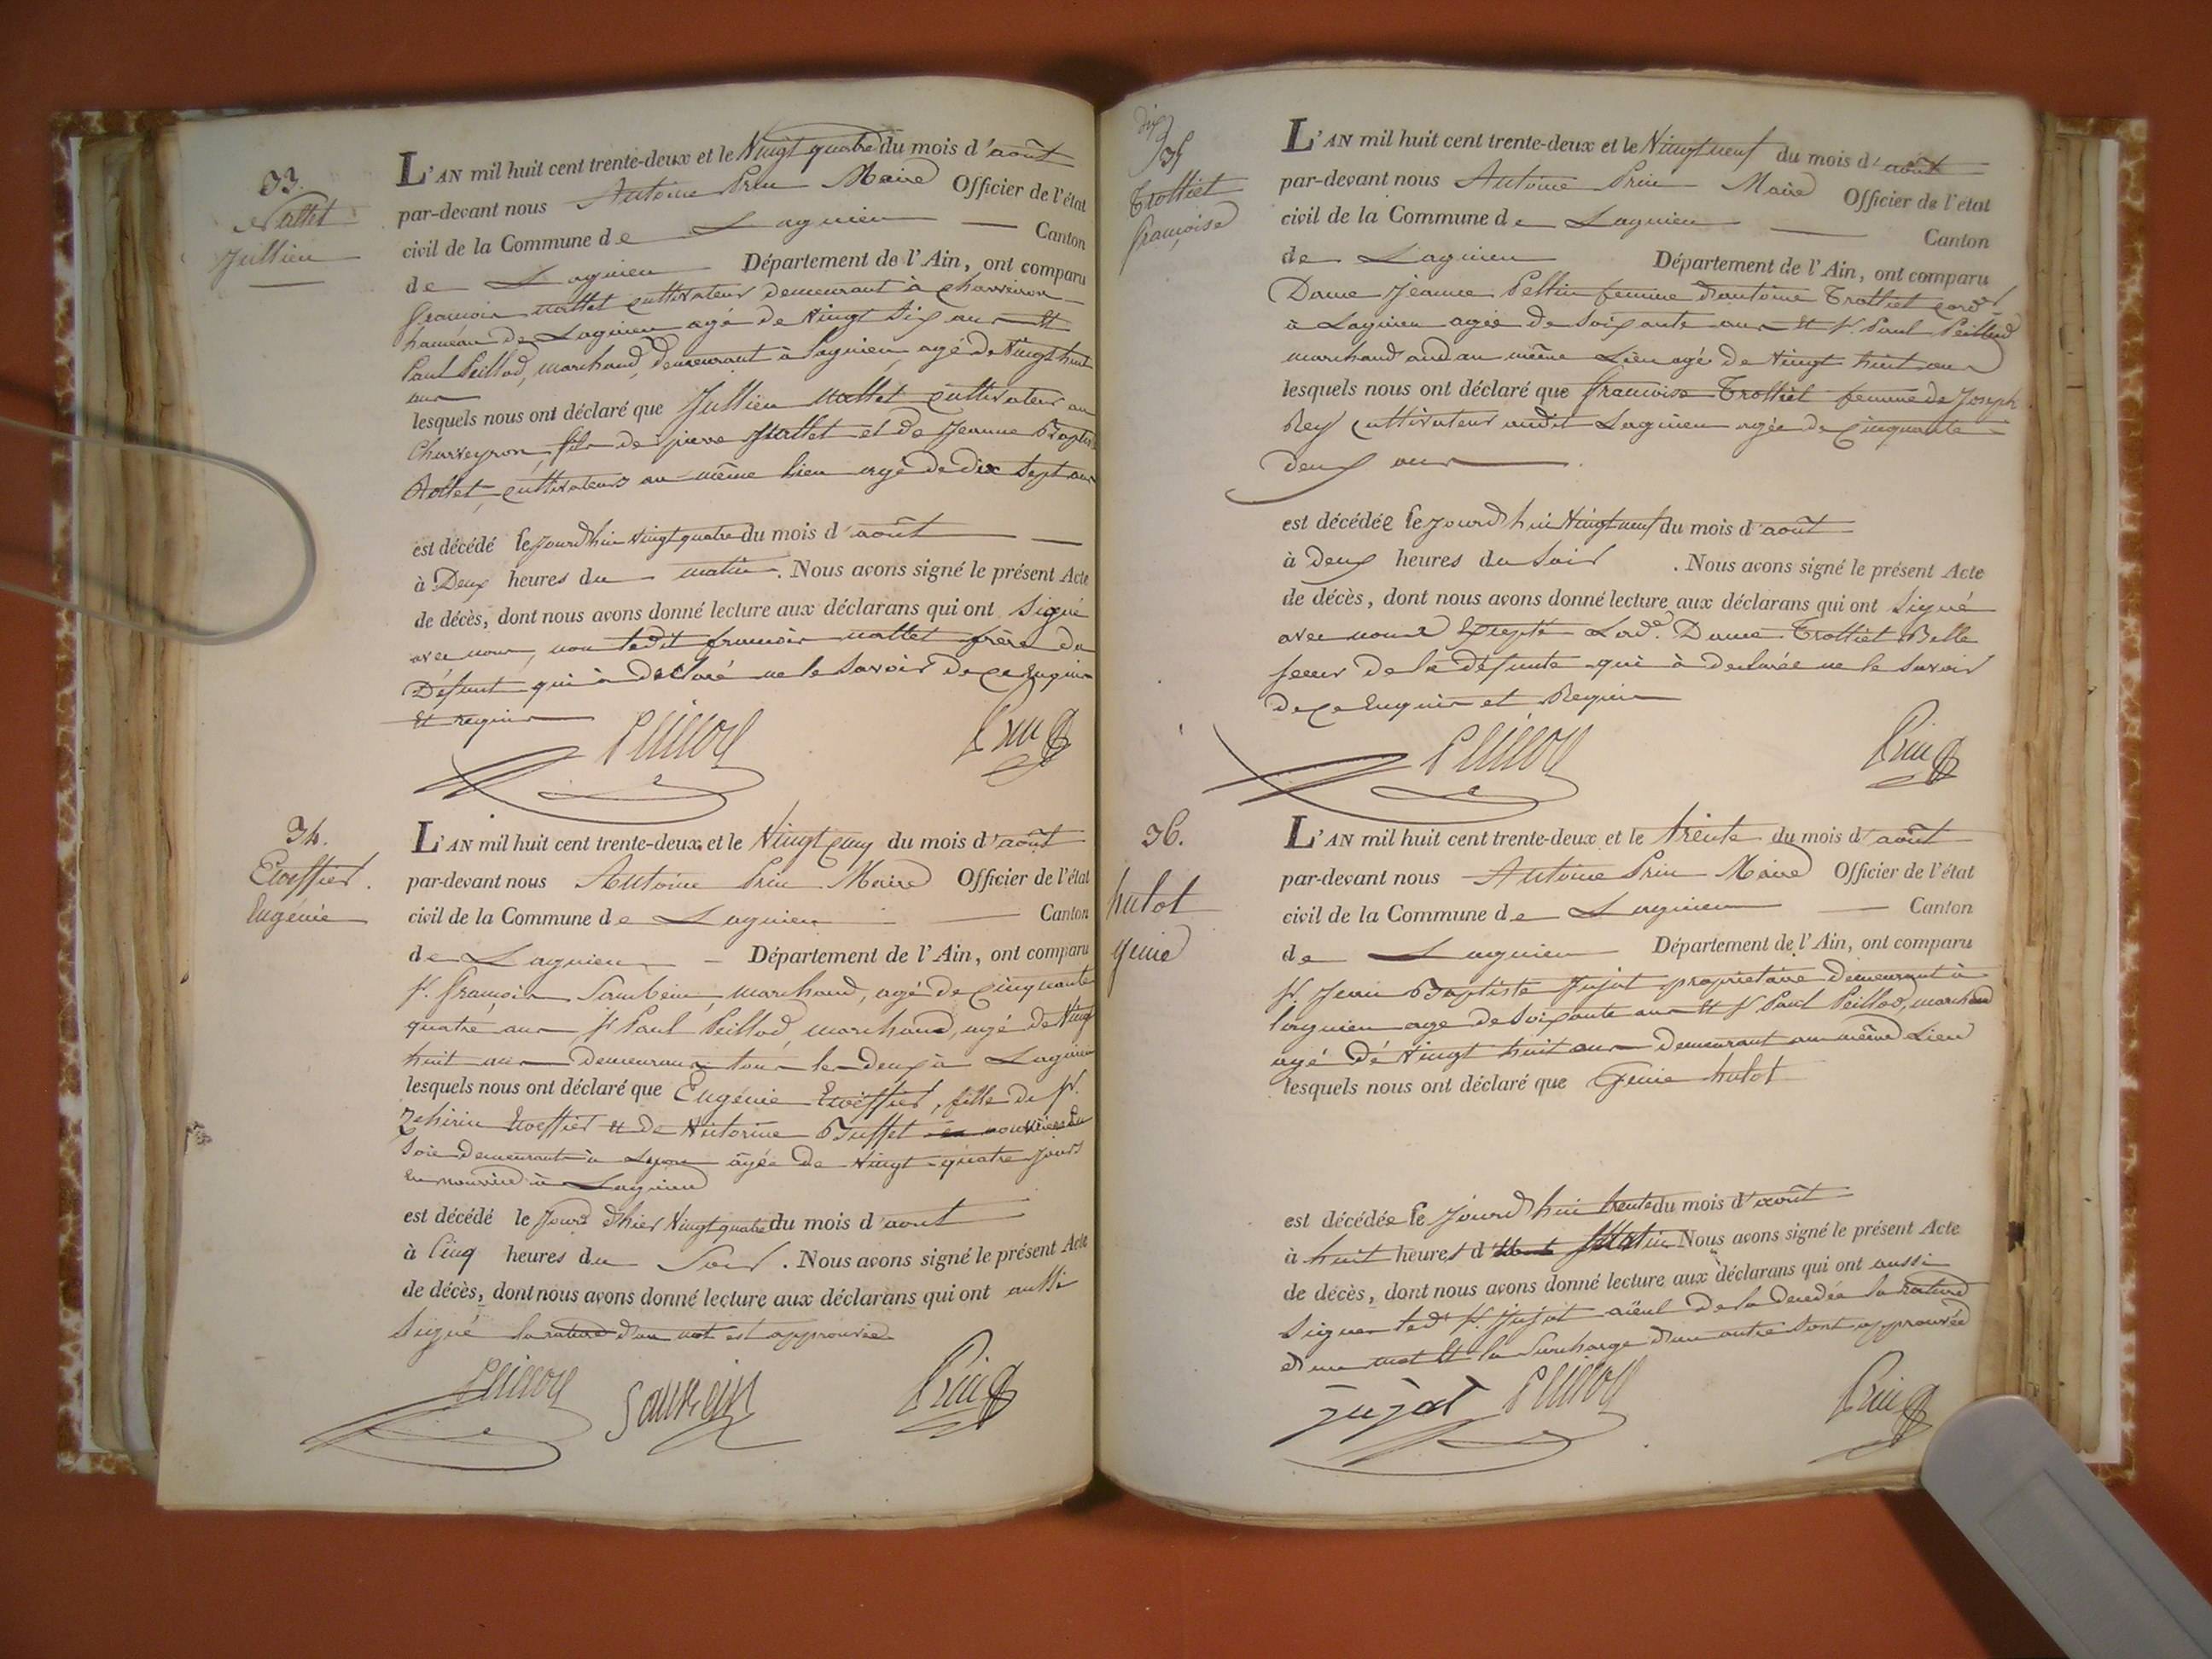 33.
Nallet
Jullien
L'AN mil huit cent trente-deux et le Vingt quatre du mois d'août
par-devant nous Antoine Prin Maire Officier de l'état
civil de la Commune de Lagnieu Canton
de Lagnieu Département de l'Ain, ont comparu
françois nallet cultivateur demeurant à Charveiron
hameau de Lagnieu agé de Vingt Six ans et
Paul Peillod, marchand, demeurant à Lagnieu, agé de Vingt huit
ans
lesquels nous ont déclaré que Jullien Nallet cultivateur au
Charveyron, fils de pierre Nallet et de Jeanne Baptiste
cultivateurs au même lieu agé de dix Sept ans
est décédé le jourdhui vingt quatre du mois d'août
à Deux heures du matin. Nous avons signé le présent Acte
de décès, dont nous avons donné lecture aux déclarans qui ont Signé
avec nous, non ledit françois nallet frère du
Défunt qui à déclaré ne le Savoir de ce Enquis
Et requis
Peillod Prin
34.
Eugénie
L'AN mil huit cent trente-deux et le Vingt cinq du mois d'août
par-devant nous Antoine Prin Maire Officier de l'état
civil de la Commune de Lagnieu Canton
de Lagnieu Département de l'Ain, ont comparu
Sr. françois marchand, agé de Cinquante
quatre ans, Sr Paul Peillod, marchand, agé de Vingt
huit ans demeurans tous les deux à Lagnieu
lesquels nous ont déclaré que Eugénie fille de Sr.
et de Buffet ouvriers en
Soie demeurant à Lyon âgée de Vingt-quatre jours
en nourrice à Lagnieu
est décédé le Jour d'hier Vingt quatre du mois d'aout
à Cinq heures du Soir. Nous avons signé le présent Acte
de décès, dont nous avons donné lecture aux déclarans qui ont aussi
Signé la rature d'un mot est approuvée
Peillod Prin
35
Trolliet
françoise
L'AN mil huit cent trente-deux et le Vingt neuf du mois d'août
par-devant nous Antoine Prin Maire Officier de l'état
civil de la Commune de Lagnieu Canton
de Lagnieu Département de l'Ain, ont comparu
Dame Jeanne Peltin femme d'antoine Trolliet cordr
à Lagnieu agée de Soixante ans et Sr. Paul Peillod
marchand audau même Lieu agé de Vingt huit ans
lesquels nous ont déclaré que francoise Trolliet femme de Joseph
Rey cultivateur audit Lagnieu agée de Cinquante
deux ans
est décédée le jourd'hui Vingt neuf du mois d'août
à deux heures du Soir. Nous avons signé le présent Acte
de décès, dont nous avons donné lecture aux déclarans qui ont Signé
avec nous Excepté Lade. Dame Trolliet Belle
Soeur de la défunte qui à déclarée ne le Savoir
de ce Enquis et Requis
Peillod Prin
36.
hulot
genie
L'AN mil huit cent trente-deux et le trente du mois d'août
par-devant nous Antoine Prin Maire Officier de l'état
civil de la Commune de Lagnieu Canton
de Lagnieu Département de l'Ain, ont comparu
Sr. Jean Baptiste Jujat propriétaire demeurant à
Lagnieu age de Soixante ans et Sr Paul Peillod, marchand
agé de Vingt huit ans demeurant au même Lieu
lesquels nous ont déclaré que Genie hulot
est décédée le Jourd'hui trente du mois d'août
à huit heures d Matin Nous avons signé le présent Acte
de décès, dont nous avons donné lecture aux déclarans qui ont aussi
Signé ledt Sr. Jujat aïeul de la décédée la rature
d'un mot et la Surcharge d'un autre Sont approuvée
jujat Peillod Prin